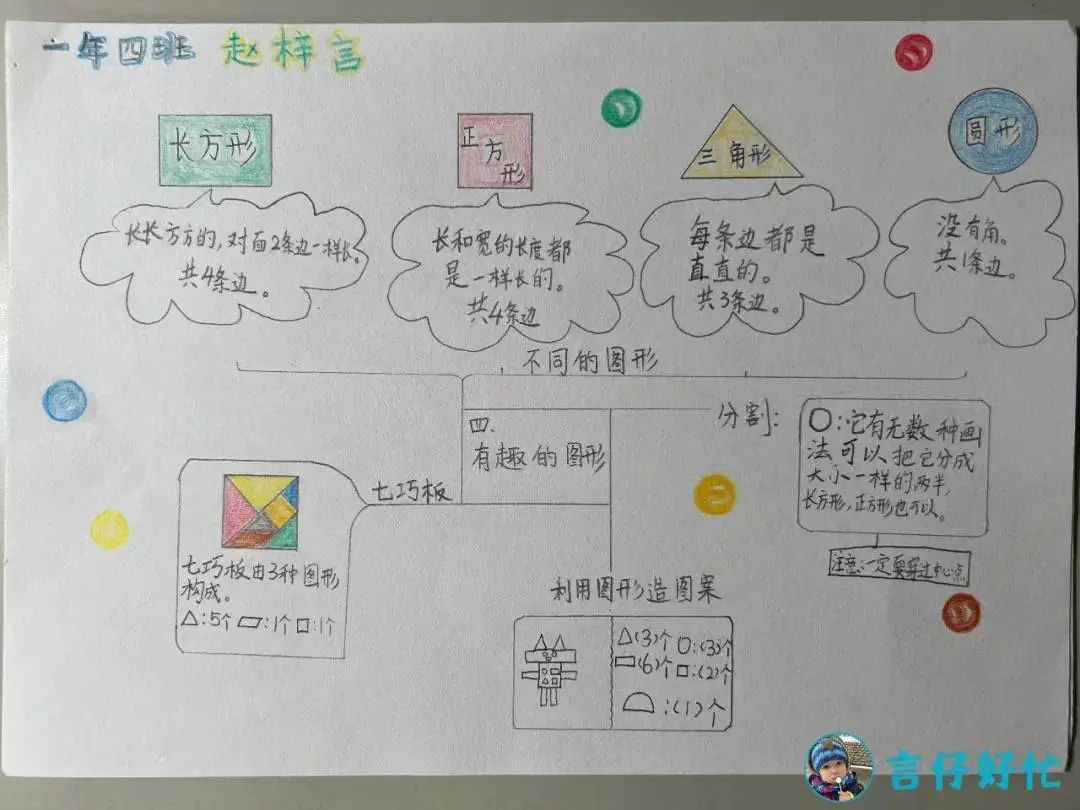 一年四班 赵梓言
长方形
正方形
三角形
圆形
长长方方的,对面2条边一样长。
共4条边。
长和宽的长度都
是一样长的。
共4条边
每条边都是
直直的。
共3条边。
没有角。
共1条边。
不同的图形
四、
有趣的图形
分割:
○:它有无数种画
法可以把它分成
大小一样的两半,
长方形,正方形也可以。
注意:一定要穿过中心点
七巧板
七巧板由3种图形
构成。
△:5个 ▱:1个 □:1个
利用图形造图案
△(3)个 ○:(3)个
▭(6)个 □:(2)个
:(1)个
言仔好忙